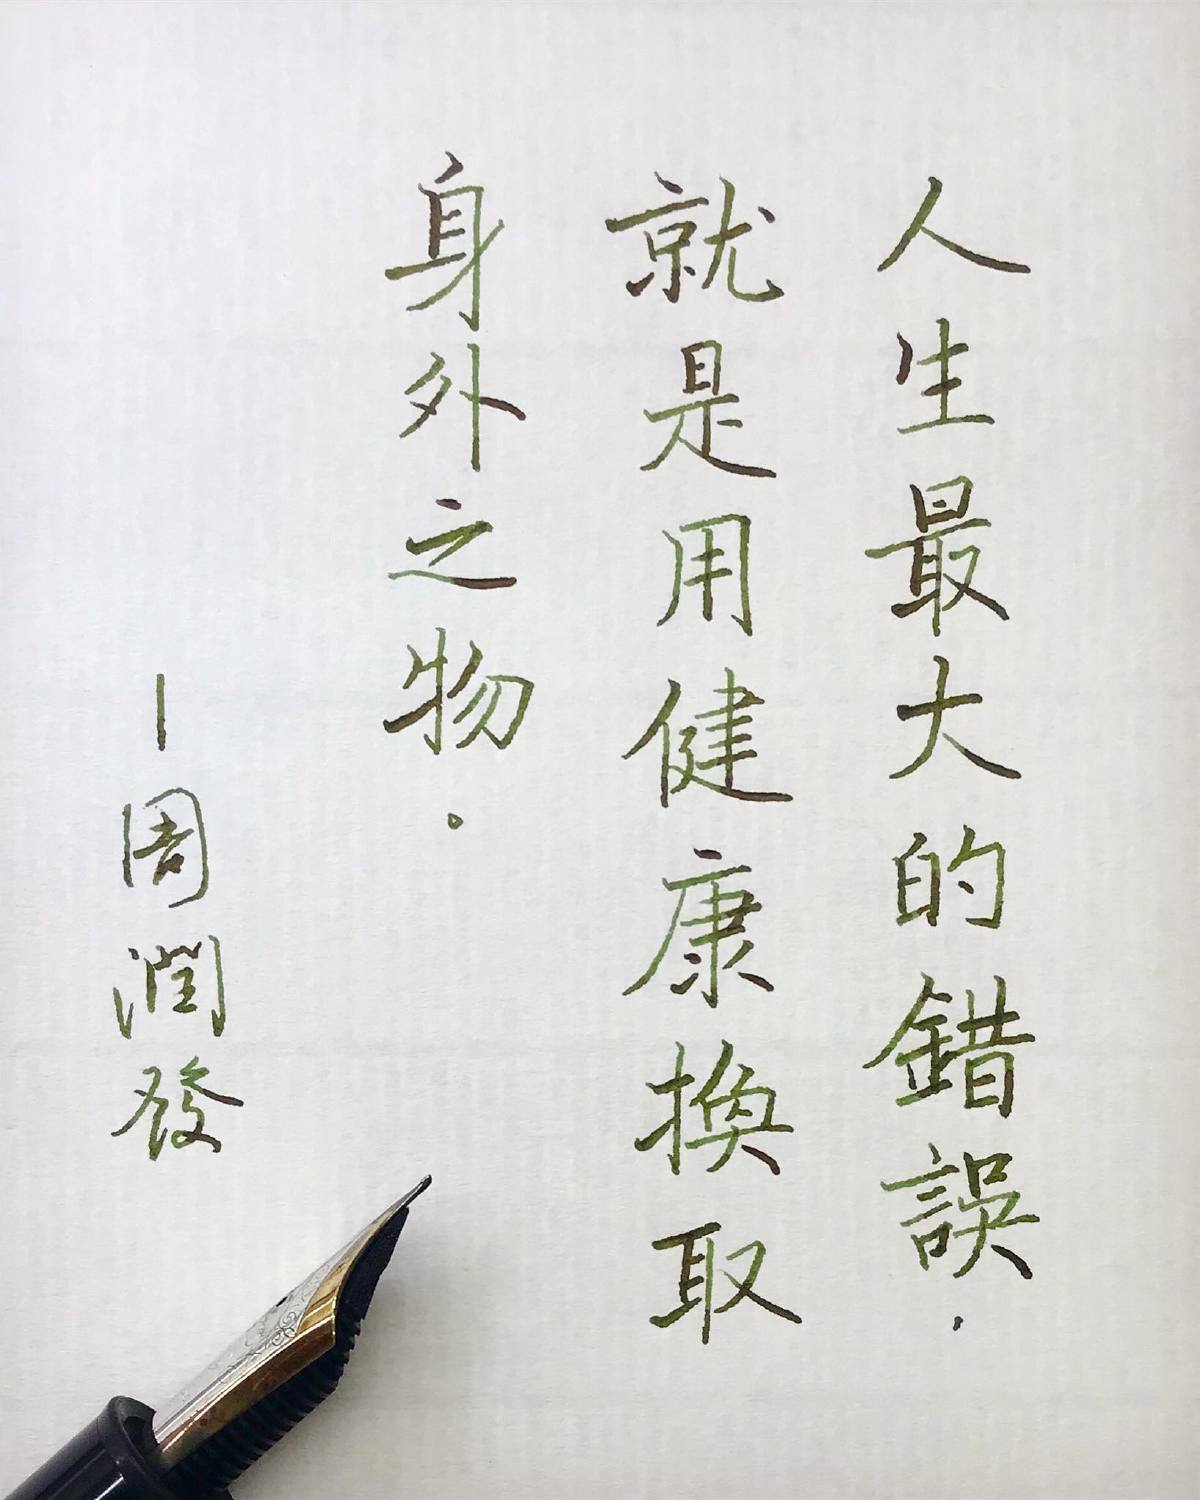 人生最大的錯誤．
就是用健康換取
身外之物．
－周潤發